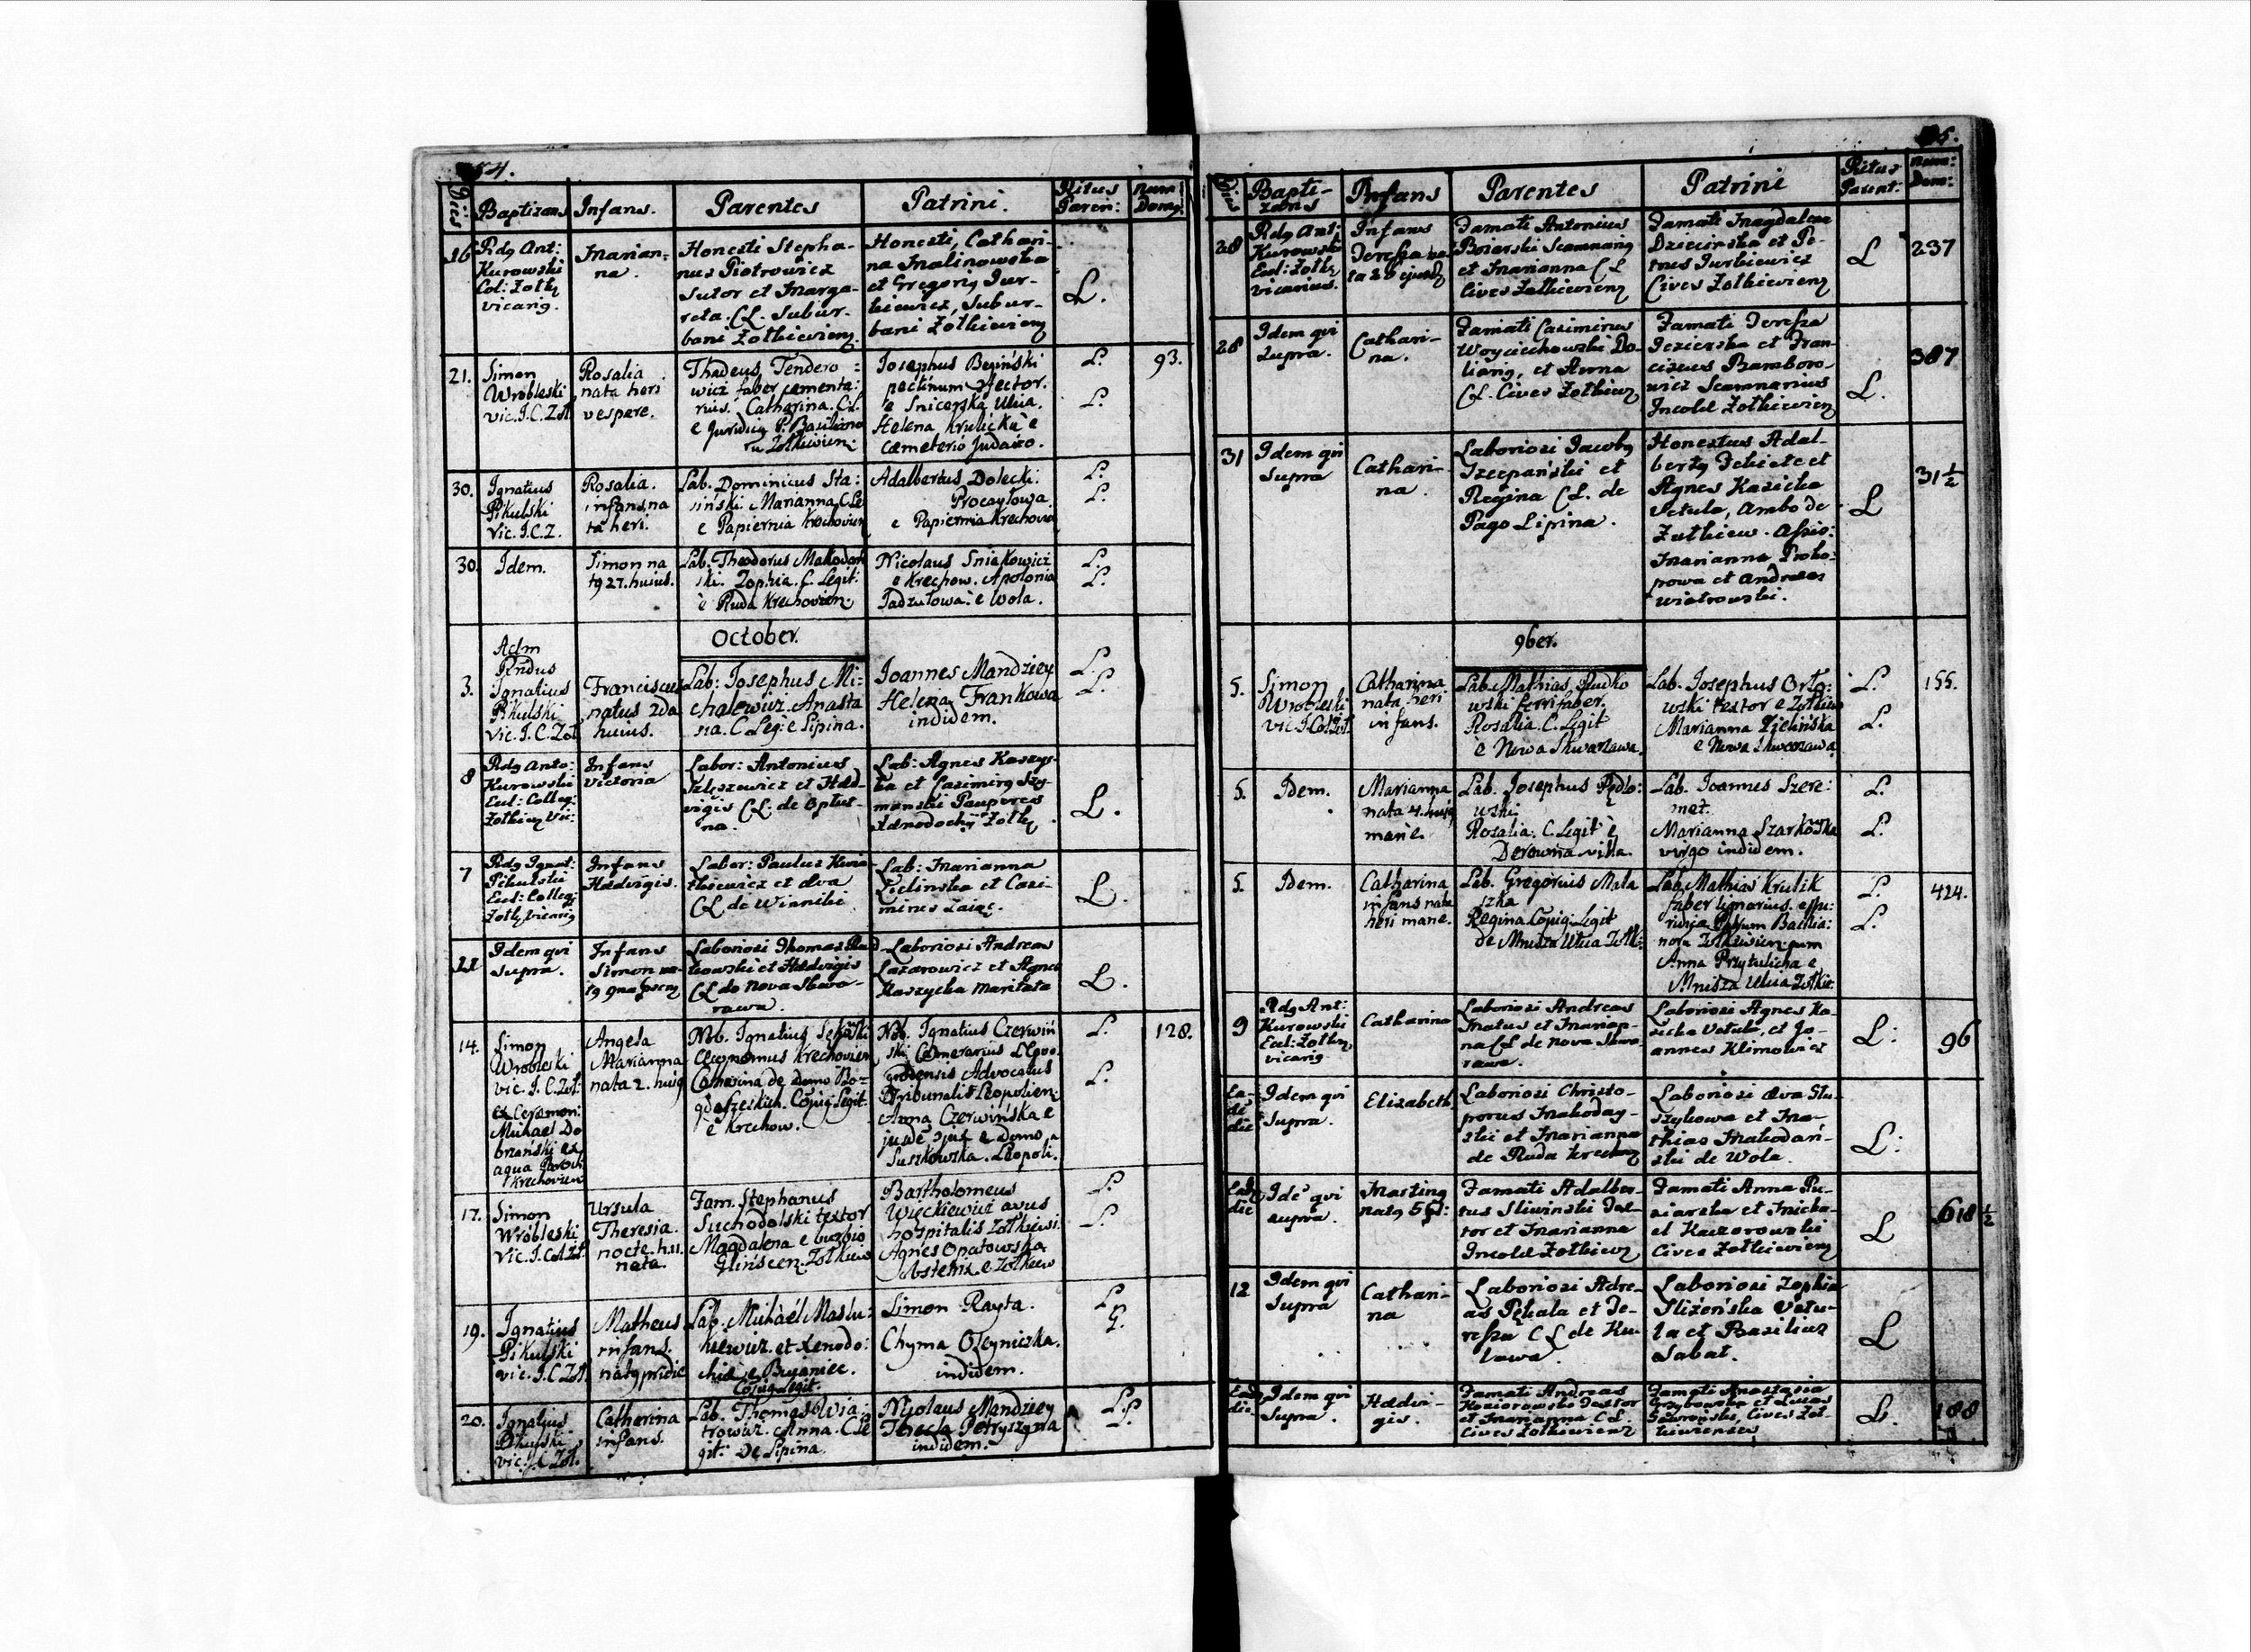 54.
Dies
Baptizans
Infans.
Parentes
Patrini.
Ritus
Paren:
Num
Dom9.
16
Rd9 Ant:
Kurowski
Col: Zołk
vicari9.
Marian-
na.
Honesti Stepha-
nus Piotrowicz
Sutor et Marga-
reta. CL. Subur-
bani Zołkiewien
Honesti, Cathari-
na Malinowska
et Gregori9 Jur-
kiewicz, Subur-
bani Żołkiewien
L.
21.
Simon
Wrobleski
vic. I. C. Zoł.
Rosalia
nata heri
vespere.
Thadeus Tendero
wicz faber cementa:
rius. Catharina. C.L.
e Juridica P. Basiliano
ru Zolkiewien:
Josephus Beginski
pectinum
e Snicerska Ulica.
Helena Krulicka e
cæmeterio Judaico.
L.
L.
93.
30.
Ignatius
Pikulski
Vic. I. C. Z.
Rosalia.
infans, na
ta heri.
Lab. Dominicus Sta:
siński. Marianna. C. Le
e Papiernia Krechovien
Adalbertus Dolecki.
e Papiernia Krechovien
L.
L.
30.
Idem.
Simon na
t9 27. huius.
Lab. Theodorus Makodań
ski. Zophia. C. Legit:
e Ruda Krechovien:
Nicolaus Sniakowicz
e Krechow. Apolonia
e Wola.
L.
L.
October.
3.
Adm
Rndus
Ignatius
Pikulski
Vic. I. C. Zoł
Franciscus
natus 2da
huius.
Lab: Josephus Mi:
chalewicz. Anasta
sia. C. Leg: e Lipina.
Joannes Mandziey
Helena Frankowa
indidem.
L.
L.
8
Rd9 Anto:
Kurowski
Eccl: Colleg:
Zołkiew Vic:
Infans
Victoria
Labor: Antonius
et Hæd-
vigis CL. de
na.
Lab: Agnes Kaszys-
ka et Casimir9 Szy-
manski Pauperes
Zołk
L.
7
Rd9 Ignat:
Pikulski
Eccl: Colleg:
Zołk vicari9
Infans
Hædvigis.
Labor: Paulus Kwia
tkiewicz et Æva
CL de Winniki
Lab: Marianna
Zielinska et Casi-
mirus Zaiąc.
L.
11
Idem qvi
supra.
Infans
Simon na-
t9 9na
Laboriosi Thomas
kowski et Hædvigis
CL de Nova Skwa-
rawa.
Laboriosi Andreas
Lazarowicz et Agnes
Kaszycka maritata
L.
14.
Simon
Wrobleski
vic. I. C. Zoł:
ex Ceremon:
Michael Do
brzański ex
aqua Paroch
Krechovien
Angela
Marianna
nata 2. hui9
Nob. Ignatius
Œconomus Krechovien
Catharina de Domo Bo=
Coniug: Legit:
e Krechow.
Nob. Ignatius Czerwiń
ski, Camerarius
Advocatus
Tribunalis Leopolien:
Anna Czerwińska e
domo
Suszkowska. Leopoli.
L.
L.
128.
17.
Simon
Wrobleski
Vic. I. Col. Zoł.
Ursula
Theresia.
nocte. h. 11.
nata.
Fam. Stephanus
Suchodolski textor
Magdalena e burgio
Glinscen. Zołkiew
Bartholomeus
Więckiewicz avus
hospitalis Zołkiewi.
Agnes Opatowska
obstetrix e Zołkiew
L.
L.
19.
Ignatius
Pikulski
vic. I. C. Zoł.
Matheus
infans.
nat9 pridie
Lab. Michael Maslu:
kiewicz. et Xenodo:
chia e Bujaniec.
Coniug Legit.
Simon Rayta.
Chyma Oleyniczka.
indidem.
L.
G.
20.
Ignatius
Pikulski
vic. I. C. Zoł.
Catherina
infans.
Lab. Thomas Wia
trowicz. Anna. C. Le
git: De Lipina.
Nicolaus Mandziey
Tecla Petryszyna
indidem.
L.
L.
Dies
Bapti-
zans
Infans
Parentes
Patrini
Ritus
Parent:
Num:
Dom:
28
Rd9 Ant:
Kurowski
Eccl: Zołk
vicarius.
Infans
Teressa na
ta 23 ejusd
Famati Antonius
Boiarski Scamnari9
et Marianna CL
Cives Zolkiewien
Famati Magdalena
Dzieciniska et Pe-
trus Jurkiewicz
Cives Zołkiewien
L
237
28
Idem qvi
Supra.
Cathari-
na.
Famati Casimirus
Woyciechowski Do-
liari9, et Anna
CL. Cives Zołkiew
Famati Teressa
Jezierska et Fran-
ciscus Bramboro-
wicz Scamnarius
Incolæ Zolkiewien
L.
387
31
Idem qvi
supra
Cathari-
na.
Laboriosi Jacob9
Szczepański et
Regina CL. de
Pago Lipina.
Honestus Adal-
bert9 et
Agnes Kasicka
Vetula, ambo de
Zulkiew. Assis:
Marianna Proko-
powa et Andreas
Wiatrowski.
L
31 1/2
9ber.
5.
Simon
Wrobleski
vic I. Col. Zoł.
Catharina
nata heri
infans.
Lab. Mathias Rudko
wski ferrifaber.
Rosalia. C. Legit
e Nowa Skwarzawa.
Lab. Josephus Orło:
wski textor e Zołkiew
Marianna Zielińska
e Nowa Skwarzawa
L.
L.
155.
5.
Idem.
Marianna
nata 4. hui9
mane.
Lab. Josephus Pędlo:
wski
Rosalia. C. Legit e
Derewnia villa.
Lab. Joannes Szere:
met.
Marianna Szarkowska
virgo indidem.
L.
L.
5.
Idem.
Catharina
infans nata
heri mane.
Lab. Gregorius Mala
szka
Regina Coniug: Legit
de Mnisza Ulica Zołk:
Lab. Mathias Krulik
faber lignarius. e Ju:
ridica Patrum Basilia:
noru Zolkiewien: cum
Anna Przytulicha e
Mnisza Ulica Zołkie:
L.
L.
424.
9
Rd9 Ant:
Kurowski
Eccl: Zolk
vicari9
Catharina
Laboriosi Andreas
Matus et Marian-
na CL de Nova Skwa
rawa.
Laboriosi Agnes Ka-
sicka Vetula, et Jo-
annes Klimowicz
L:
96
Ea-
de
die
Idem qvi
Supra.
Elisabeth
Laboriosi Christo-
porus Makoday-
ski et Marianna
de Ruda Krechow
Laboriosi Æva Stu-
szykowa et Ma-
thias Makodań-
ski de Wola.
L:
Eade
die
Ide qvi
supra.
Martin9
nat9 5
Famati Adalber-
tus Sliwinski Sar-
tor et Marianna
Incolæ Zolkiew
Famati Anna Pu-
siarska et Micha-
el Kaczorowski
Cives Zolkiewien
L
618 1/2
12
Idem qvi
Supra
Cathari-
na
Laboriosi Adre-
as Pękala et Te-
ressa CL de Ku-
lawa.
Laboriosi Zophia
Sliżeńska Vetu-
la et Basilius
Sabat.
L
Eade
die
Idem qvi
Supra.
Hædvi-
gis.
Famati Andreas
Koziorowski Sartor
et Marianna CL.
Cives Zolkiewien
Famati Anastasia
Grzybowska et Lucas
Cives Zoł-
kiewienses
L.
188